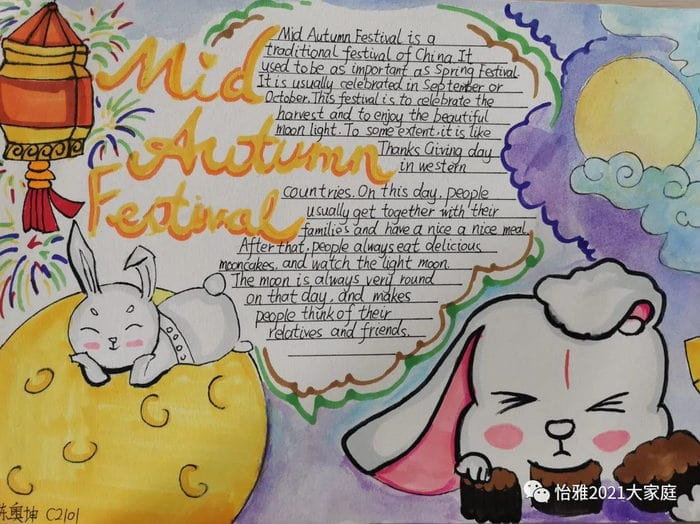 Mid
Autumn
Festival
Mid Autumn Festival is a
traditional festival of China. It
used to be as important as Spring Festival.
It is usually celebrated in September or
October. This festival is to celebrate the
harvest and to enjoy the beautiful
moon light. To some extent, it is like
Thanks Giving day
in western
countries. On this day, people
usually get together with their
families and have a nice a nice meal.
After that, people always eat delicious
mooncakes, and watch the light moon.
The moon is always very round
on that day, and makes
people think of their
relatives and friends.
陈奥坤 C2101
怡雅2021大家庭